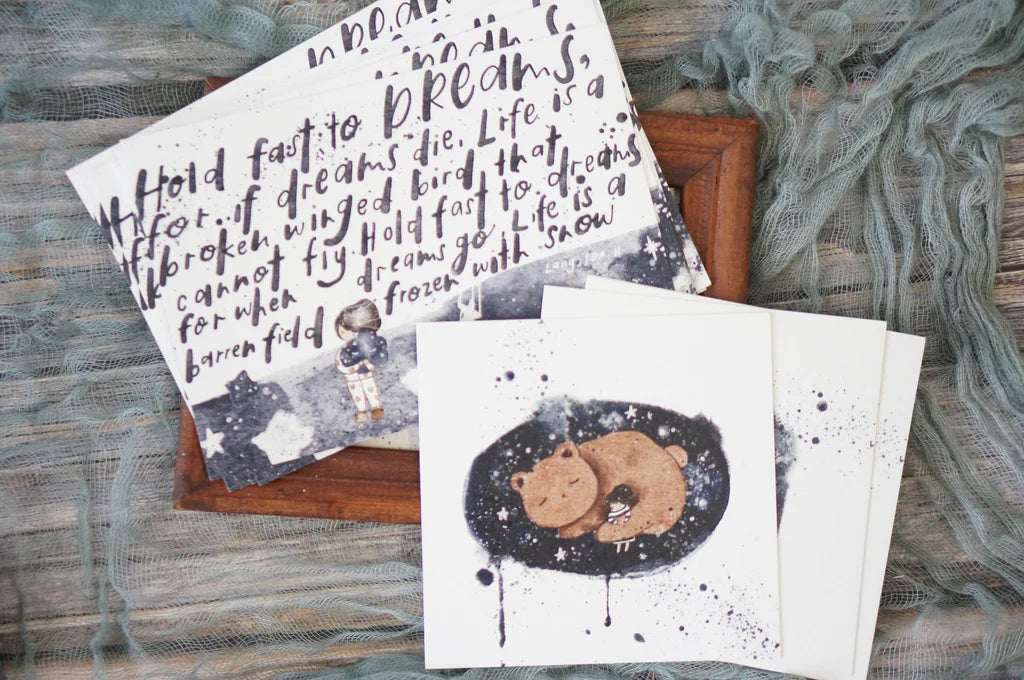 Hold fast to DREAMS,
for if dreams die. Life is a
broken winged bird that
cannot fly. Hold fast to dreams
for when dreams go. Life is a
barren field frozen with snow